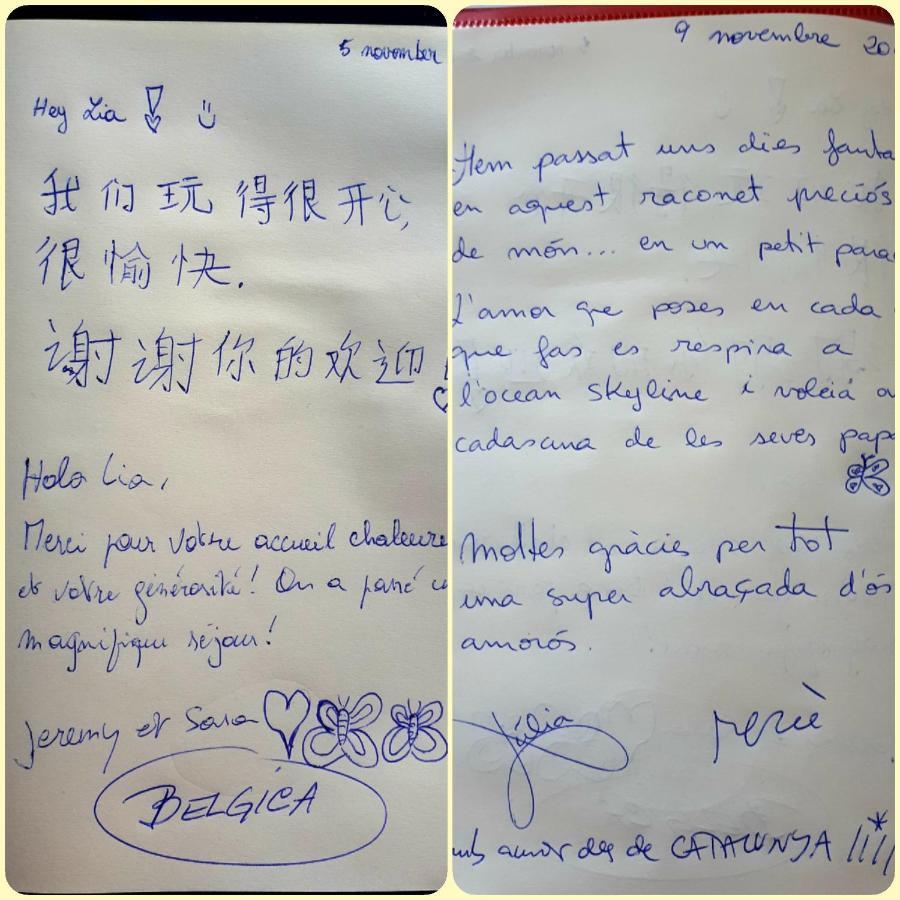 5 november
Hey Lia ! :)
我们玩得很开心,
很愉快.
谢谢你的欢迎
Hola Lia,
Merci pour votre accueil chaleure
et votre générosité! On a passé
magnifique séjour!
Jeremy et Sara
BELGICA
9 novembre 20
Hem passat uns dies fanta
en aquest raconet preciós
de món... en un petit para
L'amor que poses en cada
que fas es respira a
l'ocean skyline i voleià a
cadascuna de les seves papa
Moltes gràcies per tot
una super abraçada d'ós
amorós.
Júlia
mb amor des de CATALUNYA !!!!